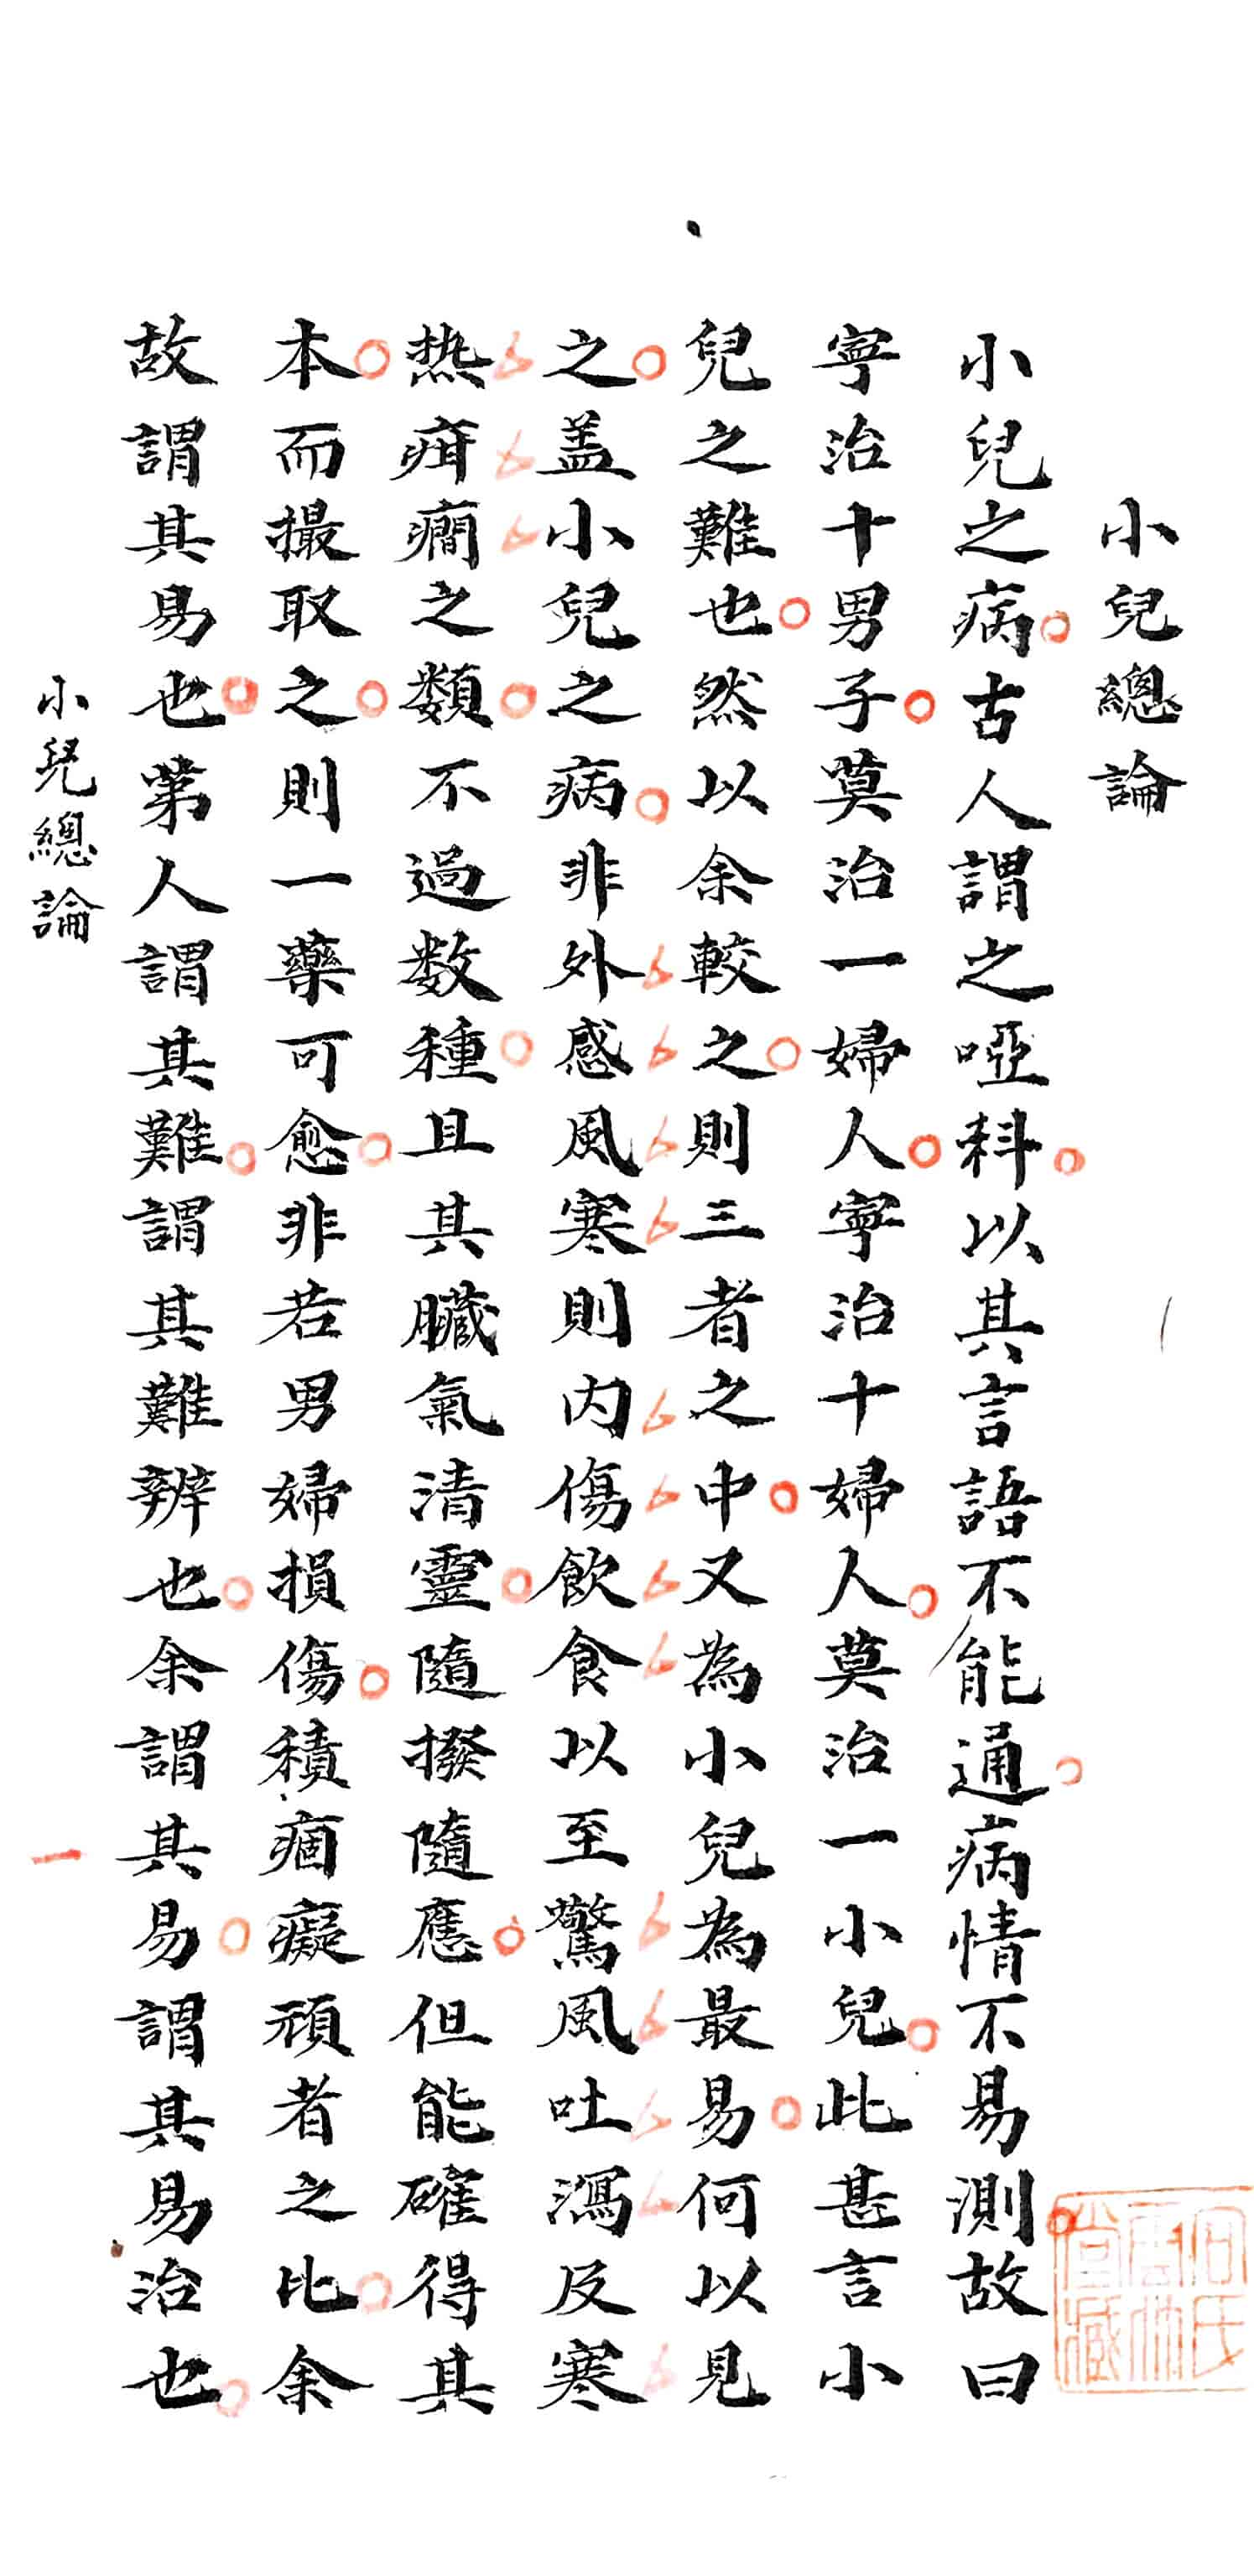 小兒總論
小兒之病古人謂之啞科以其言語不能通病情不易測故曰
寧治十男子莫治一婦人寧治十婦人莫治一小兒此甚言小
兒之難也然以余較之則三者之中又為小兒為最易何以見
之盖小兒之病非外感風寒則内傷飲食以至驚風吐瀉及寒
热疳癇之類不過数種且其臟氣清靈隨撥隨應但能確得其
本而撮取之則一藥可愈非若男婦損傷積痼癡頑者之比余
故謂其易也第人謂其難謂其難辨也余謂其易謂其易治也
小兒總論
一